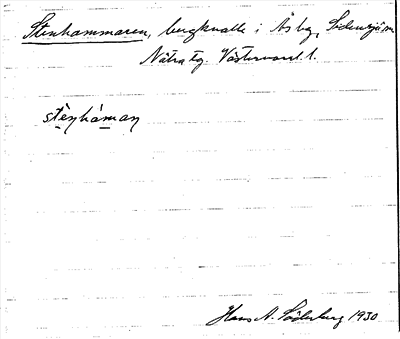 Stenhammaren, bergknalle i Åsby, Sidensjö sn
Nätra tg. Västernorrl. l.
stènháman
Hans A. Söderberg 1930